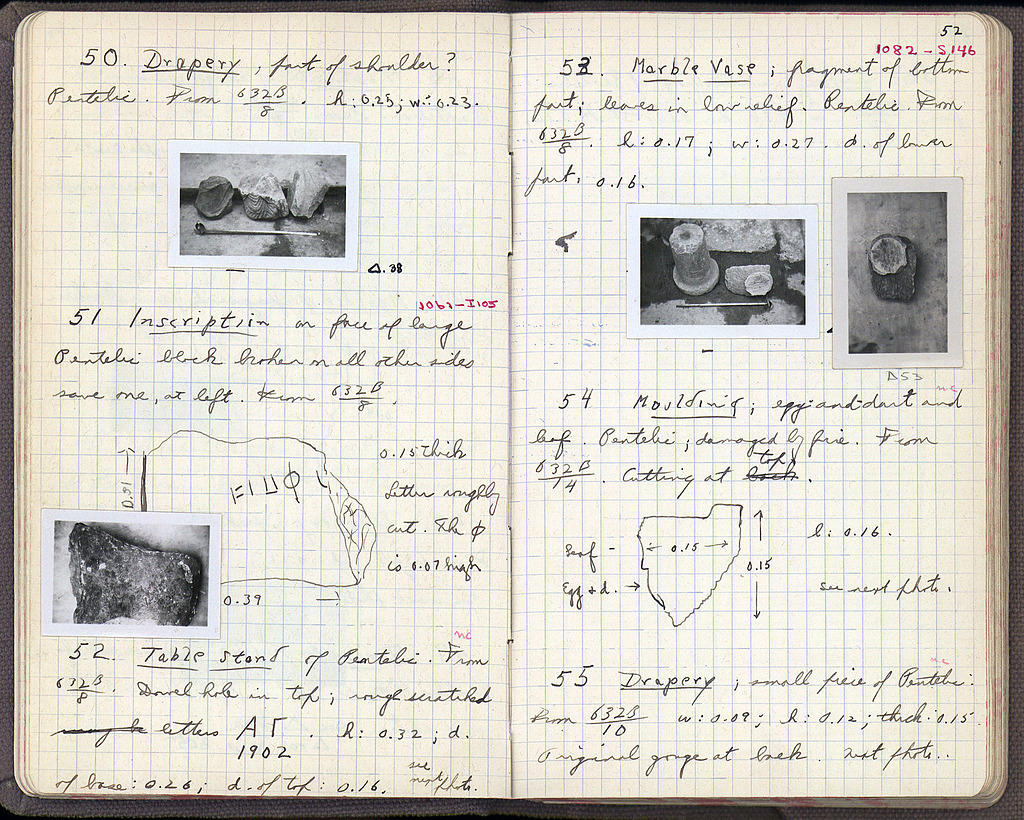 50. Drapery; part of shoulder?
Pentelic. From 632B/8. h: 0.25; w: 0.23.
Δ.38
1082-I105
51 Inscription on face of large
Pentelic block broken on all other sides
save one, at left. From 632B/8.
0.15 thick
Letters roughly
cut. The φ
is 0.07 high
0.31
0.39
nc
52. Table stand of Pentelic. From
632B/8. Dowel hole in top; rough scratched
letters ΑΓ. h: 0.32; d.
1902
of base: 0.26; d. of top: 0.16. see next photo.
52
1082-S146
53. Marble Vase; fragment of bottom
part; leaves in low relief. Pentelic. From
632B/8. h: 0.17; w: 0.27. d. of lower
part. 0.16.
Δ53
nc
54 Moulding; egg-and-dart and
leaf. Pentelic; damaged by fire. From
632B/14. Cutting at back top.
Leaf -
0.15
Egg & d. →
0.15
l: 0.16.
see next photo.
nc
55 Drapery; small piece of Pentelic.
From 632B/10 w: 0.09; h: 0.12; thick: 0.15.
Original gouge at back. next photo..